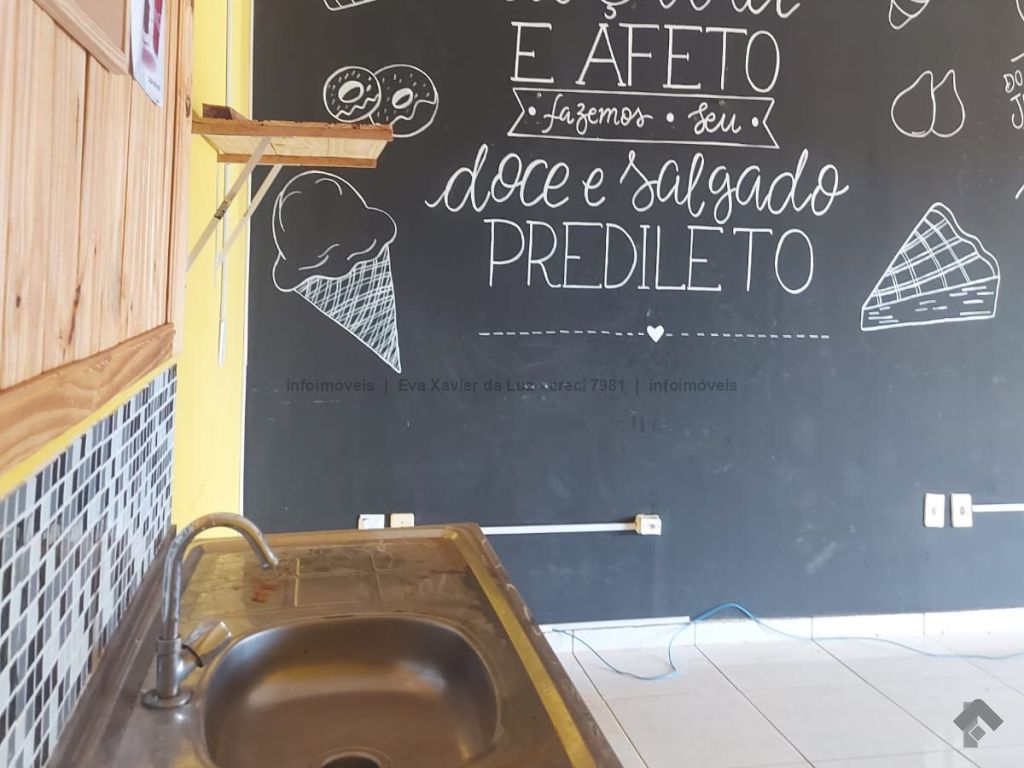 E AFETO
fazemos • seu
doce e salgado
PREDILETO
DO
infoimóveis | Eva Xavier da Luz - creci 7981 | infoimóveis